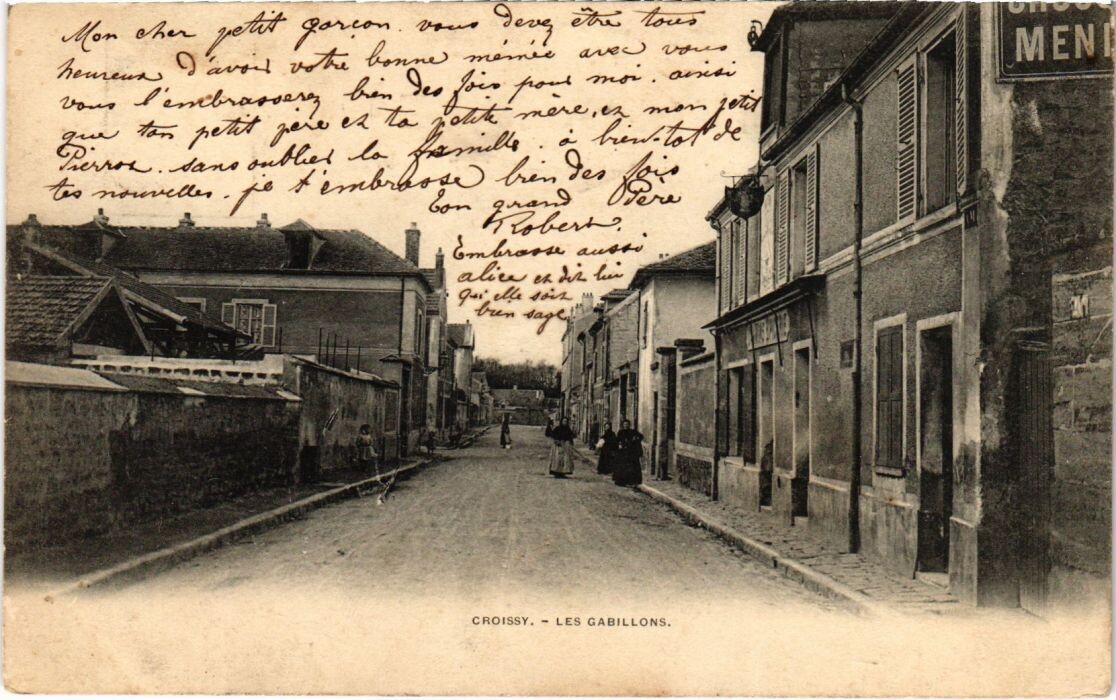 Mon cher petit garçon. vous devez être tous
heureux d'avoir votre bonne mémée avec vous
vous l'embrasserez bien des fois pour moi. ainsi
que ton petit père et ta petite mère, et mon petit
Pierrot. sans oublier la famille. à bientot de
tes nouvelles. je t'embrasse bien des fois
Ton grand Père
Robert.
Embrasse aussi
alice et dit lui
qu'elle soit
bien sage
MEN
CROISSY. - LES GABILLONS.